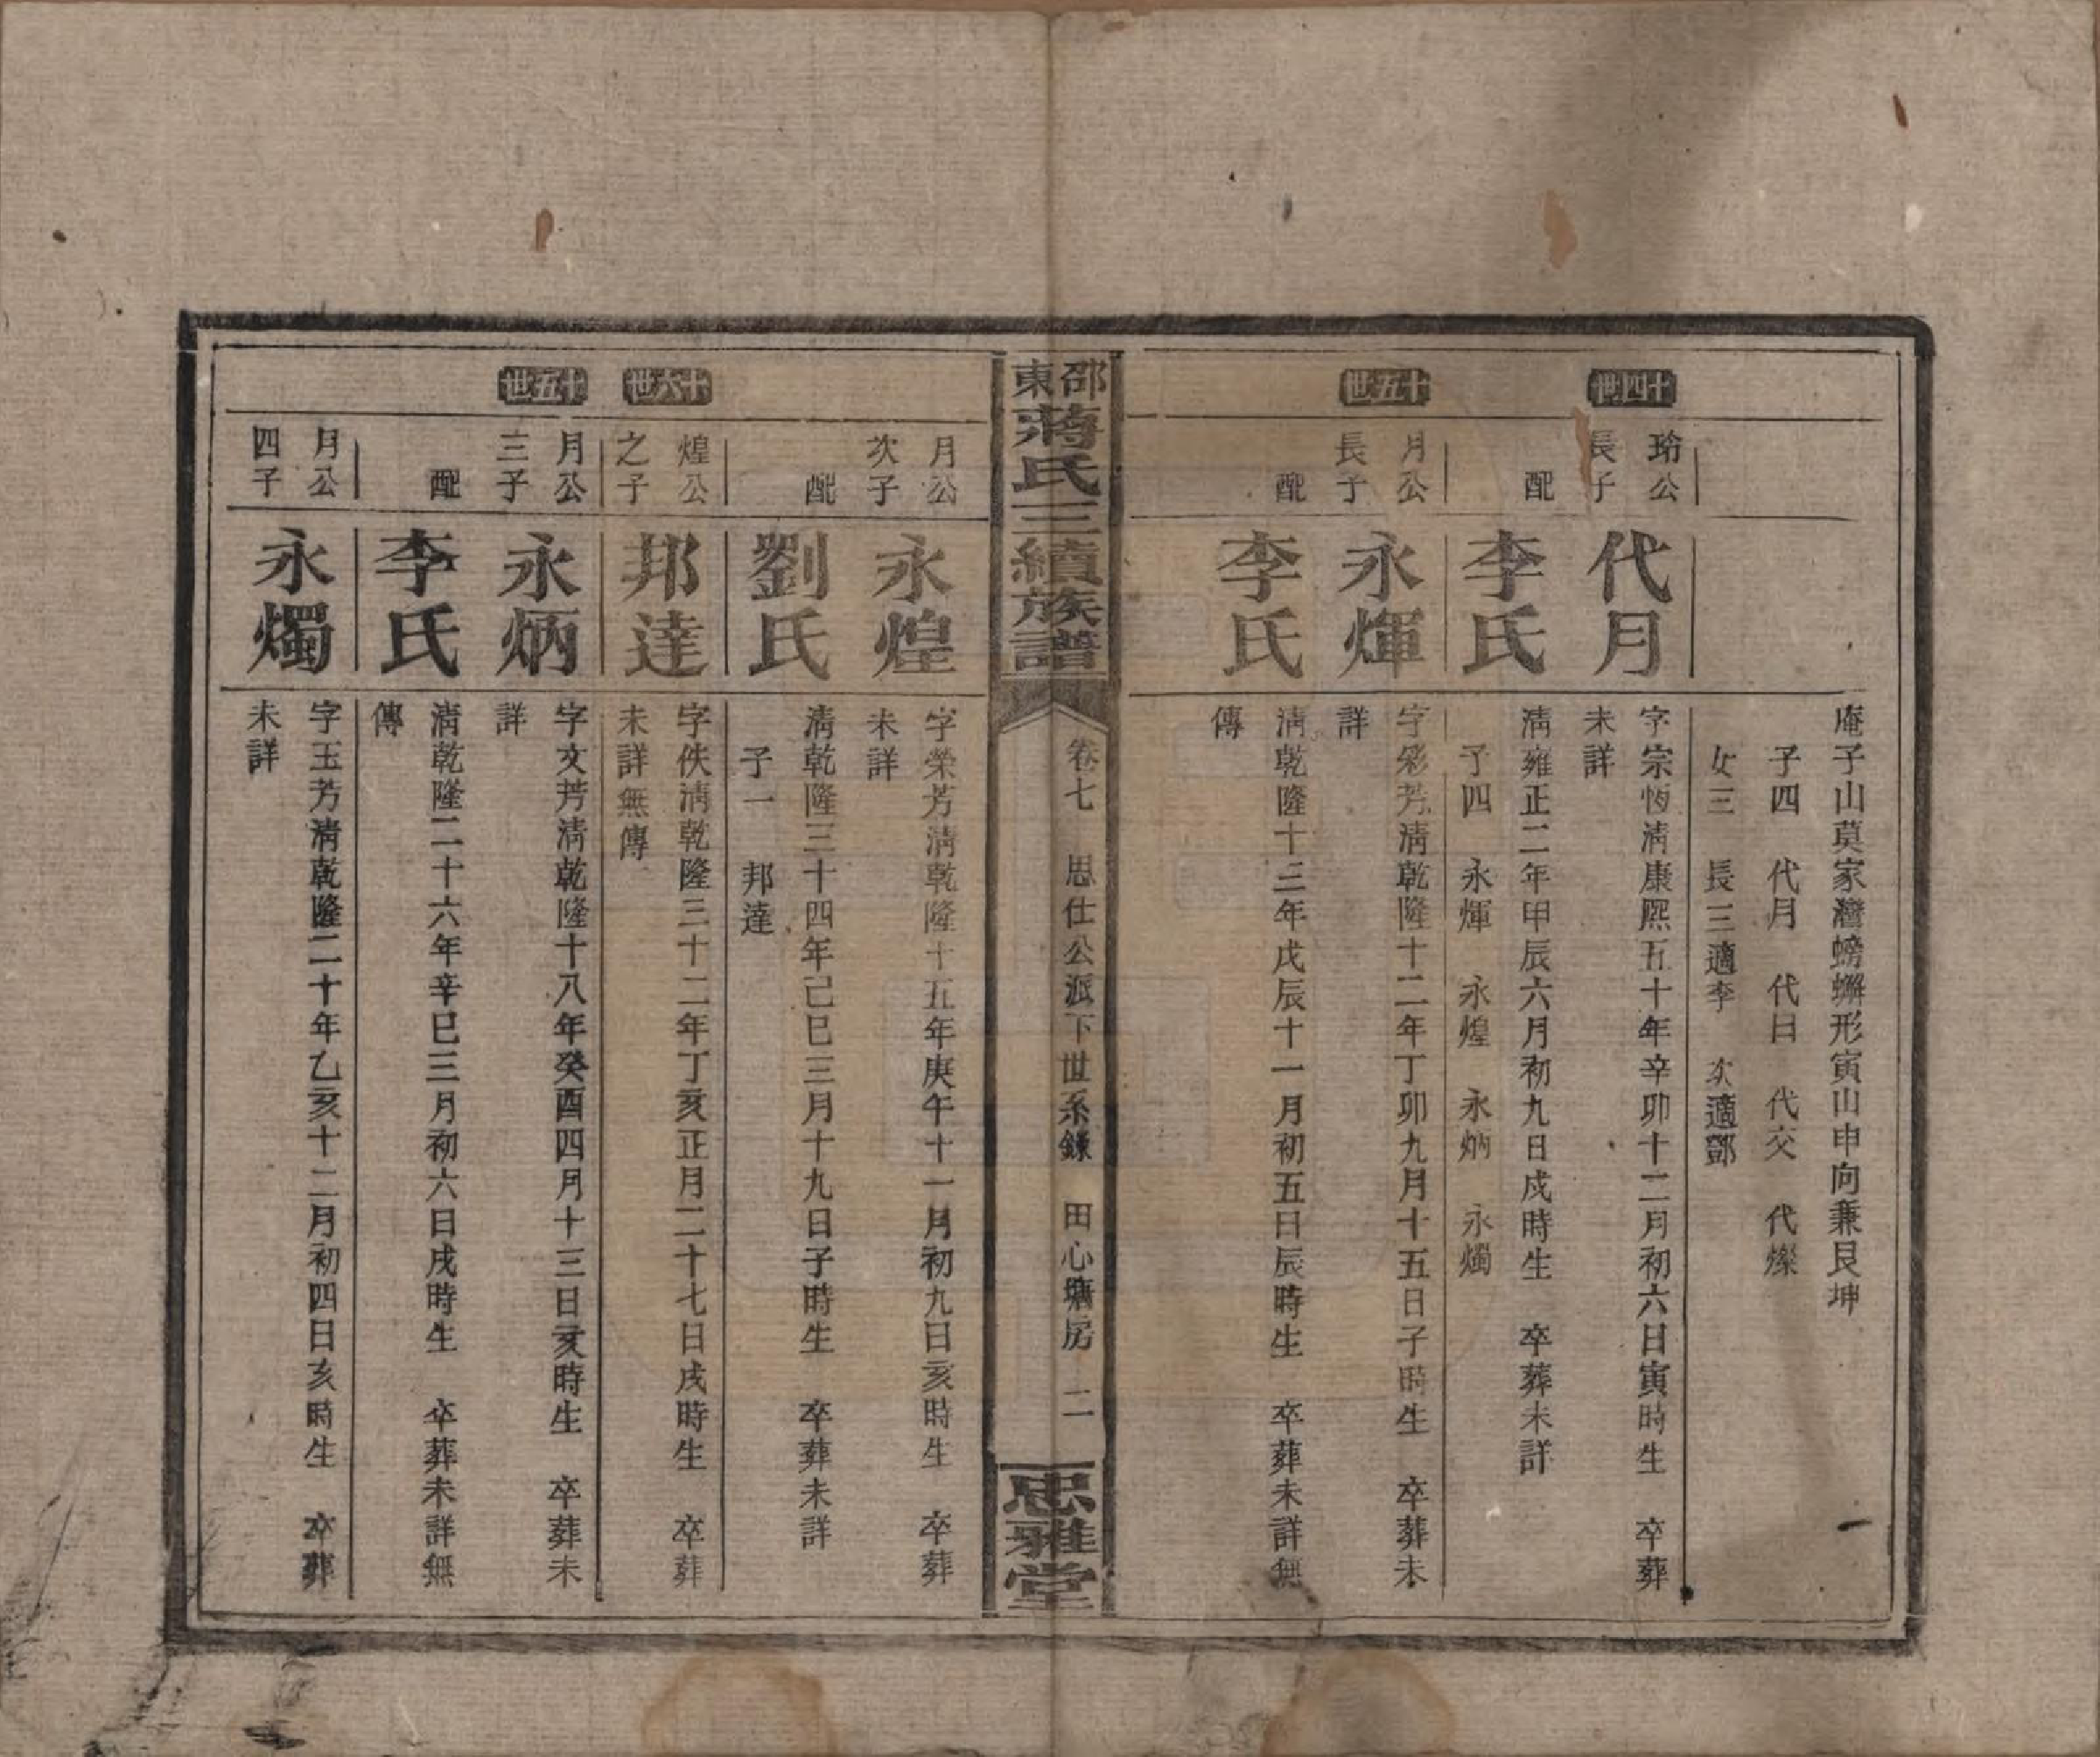 庵子山莫家灣螃蠏形寅山申向兼艮坤
子四　代月　代日　代交　代燦
女三　長三適李　次適鄧
十四世
瑜公長子
代月
字宗恆淸康熙五十年辛卯十二月初六日寅時生　卒葬
未詳
配
李氏
淸雍正二年甲辰六月初九日戌時生　卒葬未詳
子四　永煇　永煌　永炳　永燭
十五世
月公長子
永煇
字彩芳淸乾隆十二年丁卯九月十五日子時生　卒葬未
詳
配
李氏
淸乾隆十三年戊辰十一月初五日辰時生　卒葬未詳無
傳
邵東蔣氏三續族譜
卷七　思仕公派下世系錄　田心塘房　二
忠雅堂
月公次子
永煌
字榮芳淸乾隆十五年庚午十一月初九日亥時生　卒葬
未詳
配
劉氏
淸乾隆三十四年己巳三月十九日子時生　卒葬未詳
子一　邦達
十六世
煌公之子
邦達
字佚淸乾隆三十二年丁亥正月二十七日戌時生　卒葬
未詳無傳
十五世
月公三子
永炳
字文芳淸乾隆十八年癸酉四月十三日亥時生　卒葬未
詳
配
李氏
淸乾隆二十六年辛巳三月初六日戌時生　卒葬未詳無
傳
月公四子
永燭
字玉芳淸乾隆二十年乙亥十二月初四日亥時生　卒葬
未詳